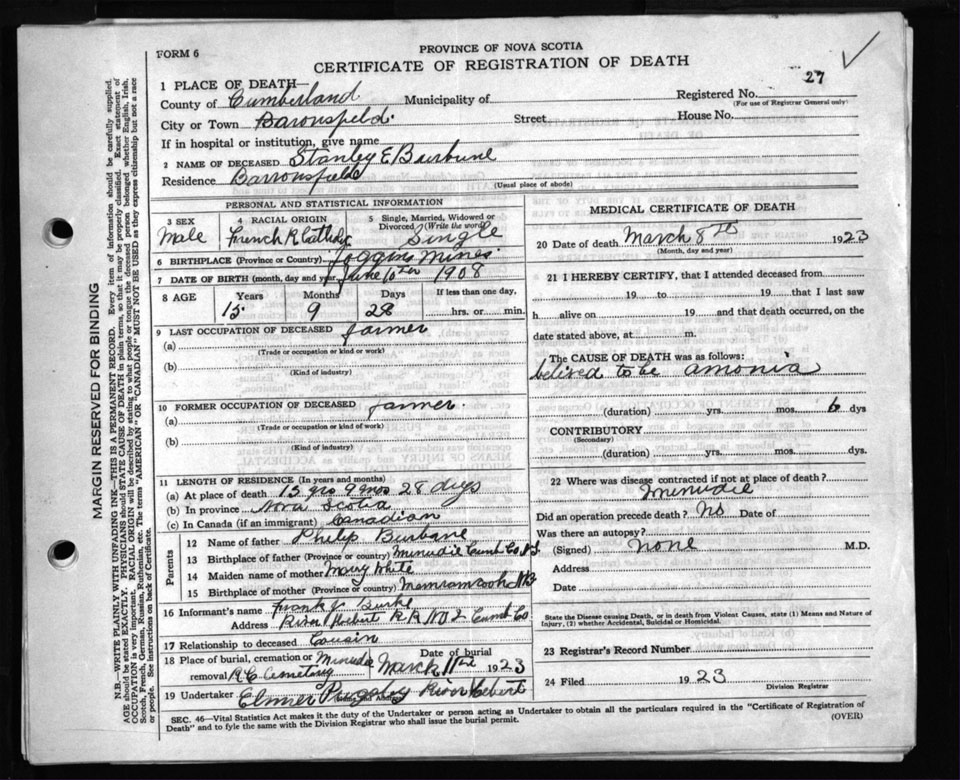 FORM 6
PROVINCE OF NOVA SCOTIA
CERTIFICATE OF REGISTRATION OF DEATH
27
1 PLACE OF DEATH—
County of Cumberland Municipality of Registered No.
(For use of Registrar General only)
City or Town Baronsfield. Street House No.
If in hospital or institution, give name
2 NAME OF DECEASED Stanley E Burbine
Residence Barronsfield
(Usual place of abode)
PERSONAL AND STATISTICAL INFORMATION
3 SEX Male
4 RACIAL ORIGIN French R Catholic
5 Single, Married, Widowed or Divorced (Write the word) Single
6 BIRTHPLACE (Province or Country) Joggins Mines
7 DATE OF BIRTH (month, day and year) June 10th 1908
8 AGE Years Months Days If less than one day,
15 9 28 hrs. or min.
9 LAST OCCUPATION OF DECEASED farmer
(a)
(Trade or occupation or kind or work)
(b)
(Kind of industry)
10 FORMER OCCUPATION OF DECEASED farmer.
(a)
(Trade or occupation or kind of work)
(b)
(Kind of industry)
11 LENGTH OF RESIDENCE (In years and months)
(a) At place of death 15 yrs 9 mos 28 days
(b) In province Nova Scotia
(c) In Canada (if an immigrant) Canadian
Parents
12 Name of father Philip Burbane
13 Birthplace of father (Province or country) Minudie Cumb Co. N.S.
14 Maiden name of mother Mary White
15 Birthplace of mother (Province or country) Memramcook NB
16 Informant's name Frank J Burke
Address River Hebert R R No 2 Cumb Co.
17 Relationship to deceased Cousin
18 Place of burial, cremation or removal Minudie R C Cemetary Date of burial March 11th 1923
19 Undertaker Elmer Pugsley River Hebert
MEDICAL CERTIFICATE OF DEATH
20 Date of death March 8th 1923
(Month, day and year)
21 I HEREBY CERTIFY, that I attended deceased from
19 to 19 that I last saw
h alive on 19 and that death occurred, on the
date stated above, at m.
The CAUSE OF DEATH was as follows:
belived to be amonia
(duration) yrs. mos. 6 dys
CONTRIBUTORY
(Secondary)
(duration) yrs. mos. dys.
22 Where was disease contracted if not at place of death?
Minudie
Did an operation precede death? No Date of
Was there an autopsy?
(Signed) none M.D.
Address
Date
State the Disease causing Death, or in death from Violent Causes, state (1) Means and Nature of Injury, (2) whether Accidental, Suicidal or Homicidal.
23 Registrar's Record Number
24 Filed 1923
Division Registrar
SEC. 46—Vital Statistics Act makes it the duty of the Undertaker or person acting as Undertaker to obtain all the particulars required in the "Certificate of Registration of
Death" and to fyle the same with the Division Registrar who shall issue the burial permit.
(OVER)
MARGIN RESERVED FOR BINDING
N.B.—WRITE PLAINLY WITH UNFADING INK—THIS IS A PERMANENT RECORD. Every item of information should be carefully supplied.
AGE should be stated EXACTLY. PHYSICIANS should STATE CAUSE OF DEATH in plain terms, so that it may be properly classified. Exact statement of
OCCUPATION is very important. RACIAL ORIGIN will be described by stating to what people or tongue the deceased person belonged whether English, Irish,
Scotch, French, German, Russian, Ruthenian, etc. The terms "AMERICAN" or "CANADIAN" MUST NOT BE USED as they express citizenship but not a race
or people. See instructions on back of Certificate.